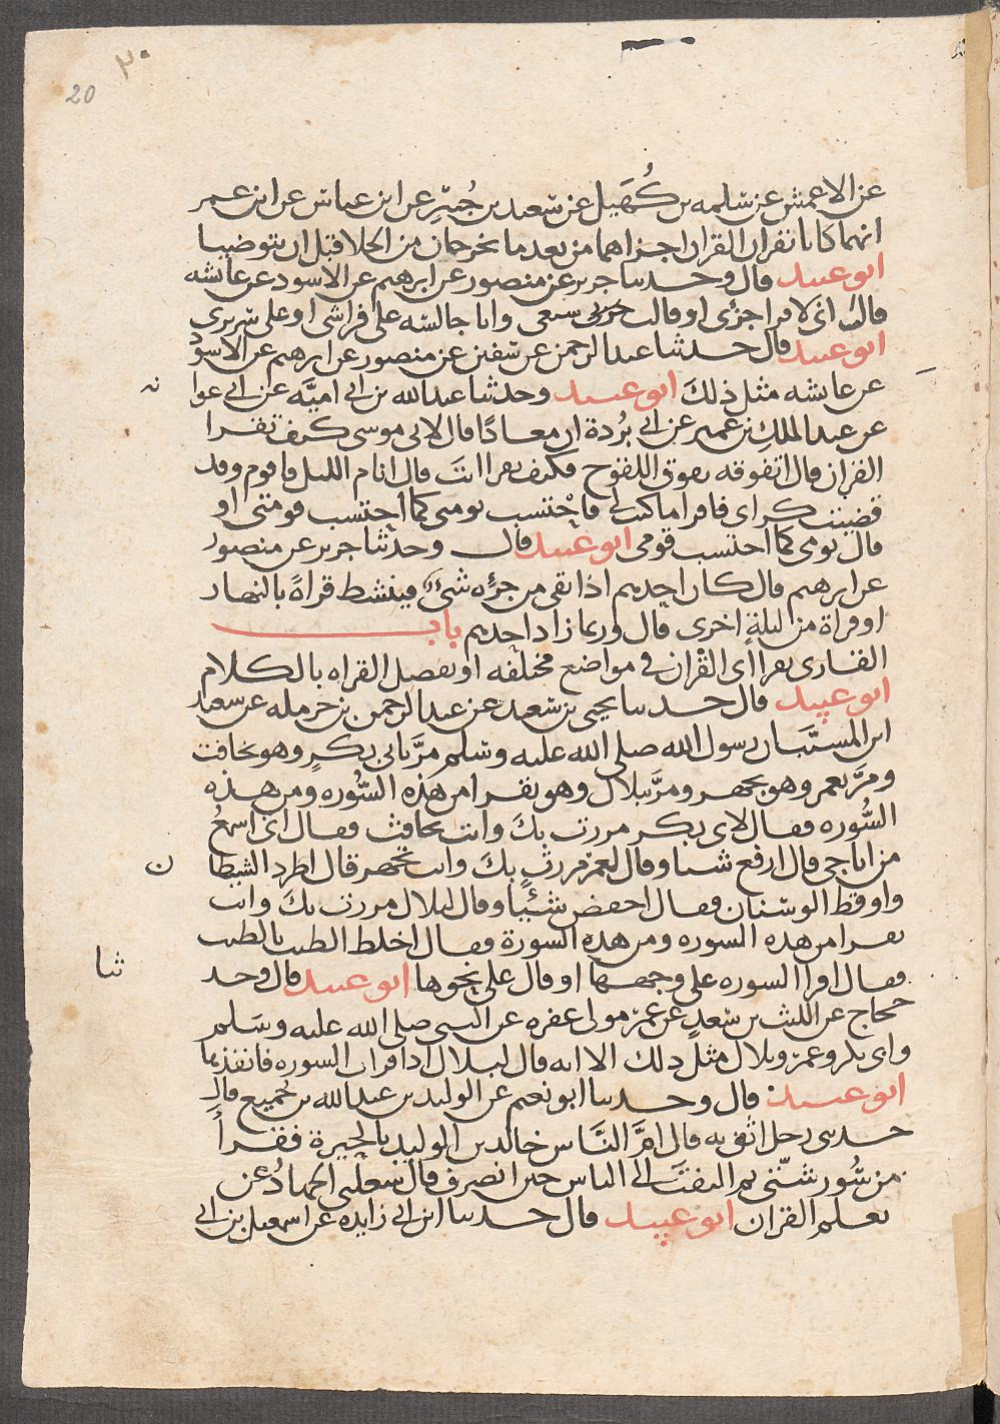 ٢٠
20
عن الاعمش عن سلمه بن كُهَيل عن سعيد بن جُبير عن ابن عباس عن ابن عمر
انهما كانا يقران القران اجزاهما من بعد ما يخرجان من الخلا قبل ان يتوضيا
ابو عبيد قال وحدثنا جرير عن منصور عن ابرهيم عن الاسود عن عائشه
قالت انى لاقرا جزئى او قالت حزبى سبعى وانا جالسه على فراشى او على سريرى
ابو عبيد قال حدثنا عبد الرحمن عن سفين عن منصور عن ابرهيم عن الاسود
عن عايشه مثل ذلك ابو عبيد وحدثنا عبد الله بن ابى اميَّه عن ابى عوا
نه
عن عبد الملك بن عمير عن ابى بُردة ان معاذًا قال لابى موسى كيف تقرا
القران قال اتفوقه تفوق اللقوح فكيف تقرا انتَ قال انام الليل فاقوم وقد
قضيت كراى فاقرا ما كتب لى فاحْتسب نومى كما احتسب قومتى او
قال نومى كما احتسب قومى ابو عبيد قال وحدثنا جرير عن منصور
عن ابرهيم قال كان احدهم اذا بقى من جزئه شىء فينشط قراهُ بالنهار
او قراه من ليلةٍ اخرى قال وربما زاد احدهم باب
القارى يقرا اى القُران فى مواضع مختلفه او يفصل القراه بالكلام
ابو عبيد قال حدثنا يحيى بن سعيد عن عبد الرحمن بن حرمله عن سعيد
ابن المسيَّب ان رسول الله صلى الله عليه وسلم مرَّ بابى بكرٍ وهو يخافت
ومرَّ بعمر وهو يجهر ومرَّ ببلال وهو يقرا من هذه السُّوره ومن هذه
السُّوره فقال لابى بكر مررت بك وانت تخافت فقال انى اسمعُ
من اناجى قال ارفع شيا وقال لعمر مررت بك وانت تجهر قال اطرد الشيطا
ن
واوقظ الوسنان فقال اخفض شيئًا وقال لبلال مررت بك وانت
تقرا من هذه السوره ومن هذه السورة فقال اخلط الطيب بالطيب
فقال اقرا السوره على وجهها او قال على نحوها ابو عبيد قال وحد
ثنا
حجاج عن الليث بن سعدٍ عن عمر مولى عفره عن النبى صلى الله عليه وسلم
وابى بكر وعمر وبلال مثل ذلك الا انه قال لبلال اذا قرات السوره فانفذها
ابو عبيد قال وحدثنا ابو نعيم عن الوليد بن عبد الله بن جُميع قال
حدثنى رجل اثق به قال امَّ النَّاس خالد بن الوليد بالحيرة فقرأ
من سُّور شتّى ثم التفتَ الى الناس حين انصرف قال شغلنى الجهادُ عن
تعلم القران ابو عبيد قال حدثنا ابن ابى زايده عن اسمعيل بن ابى